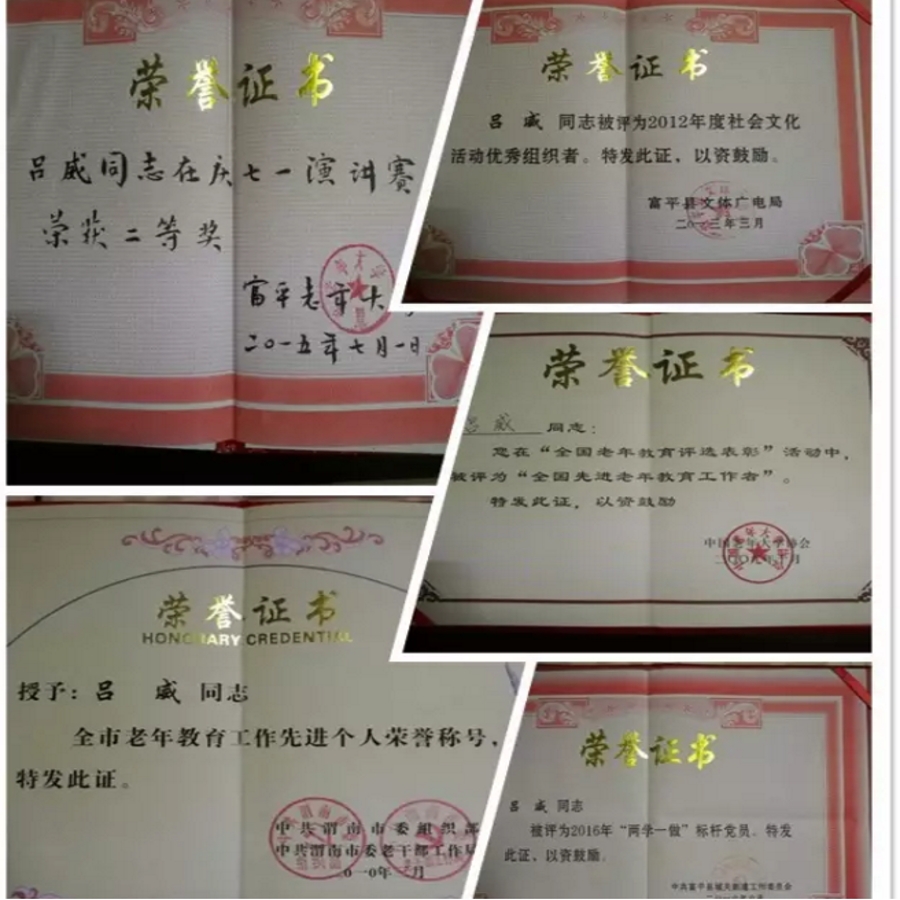 荣誉证书
吕威同志在庆七一演讲赛
荣获二等奖
富平老年大
二〇一五年七月一日
荣誉证书
吕 威 同志被评为2012年度社会文化
活动优秀组织者。特发此证、以资鼓励。
富平县文体广电局
二〇一三年三月
荣誉证书
吕威 同志:
您在“全国老年教育评选表彰”活动中,
被评为“全国先进老年教育工作者”。
特发此证,以资鼓励
中国老年大学协会
荣誉证书
HONORARY CREDENTIAL
授予:吕 威 同志
全市老年教育工作先进个人荣誉称号,
特发此证。
中共渭南市委组织部
中共渭南市委老干部工作局
荣誉证书
吕 威 同志
被评为2016年“两学一做”标杆党员。特发
此证、以资鼓励。
中共富平县城关街道工作委员会